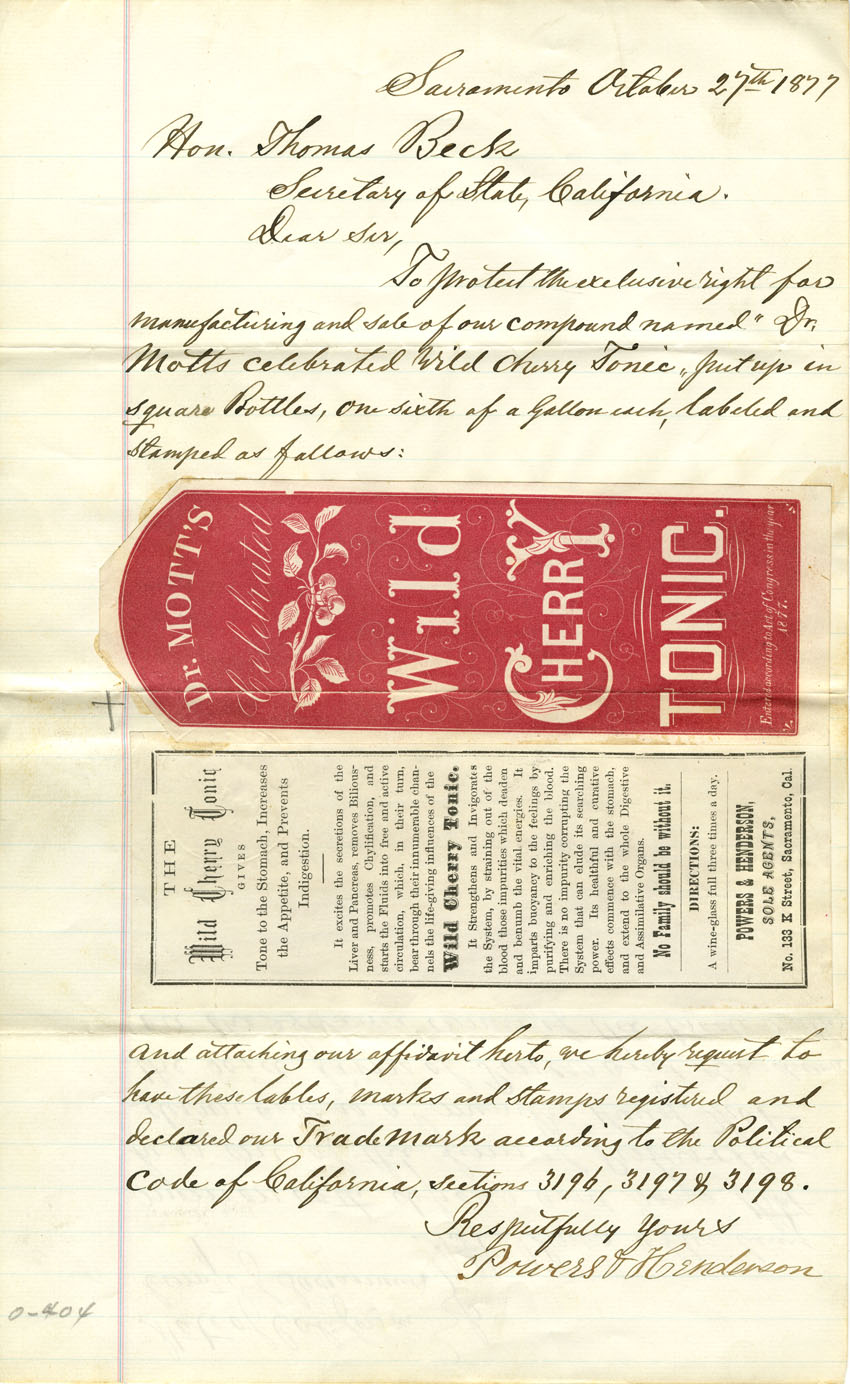 Sacramento October 27th 1877
Hon. Thomas Beck
Secretary of State, California.
Dear Sir,
To protect the exclusive right for
manufacturing and sale of our compound named " Dr.
Motts celebrated Wild Cherry Tonic „ put up in
square Bottles, one sixth of a Gallon each, labeled and
stamped as follows:
Dr. MOTT'S
Celebrated
Wild
CHERRY
TONIC.
Entered according to Act of Congress in the year
1877.
THE
Wild Cherry Tonic
GIVES
Tone to the Stomach, Increases
the Appetite, and Prevents
Indigestion.
It excites the secretions of the
Liver and Pancreas, removes Bilious-
ness, promotes Chylification, and
starts the Fluids into free and active
circulation, which, in their turn,
bear through their innumerable chan-
nels the life-giving influences of the
Wild Cherry Tonic.
It Strengthens and Invigorates
the System, by straining out of the
blood those impurities which deaden
and benumb the vital energies. It
imparts buoyancy to the feelings by
purifying and enriching the blood.
There is no impurity corrupting the
System that can elude its searching
power. Its healthful and curative
effects commence with the stomach,
and extend to the whole Digestive
and Assimilative Organs.
No Family should be without it.
DIRECTIONS:
A wine-glass full three times a day.
POWERS & HENDERSON,
SOLE AGENTS,
No. 133 K Street, Sacramento, Cal.
and attaching our affidavit herto, we hereby request to
have these lables, marks and stamps registired and
declared our Trade Mark according to the Political
Code of California, sections 3196, 3197 & 3198.
Respectfully Yours
Powers & Henderson
0-404